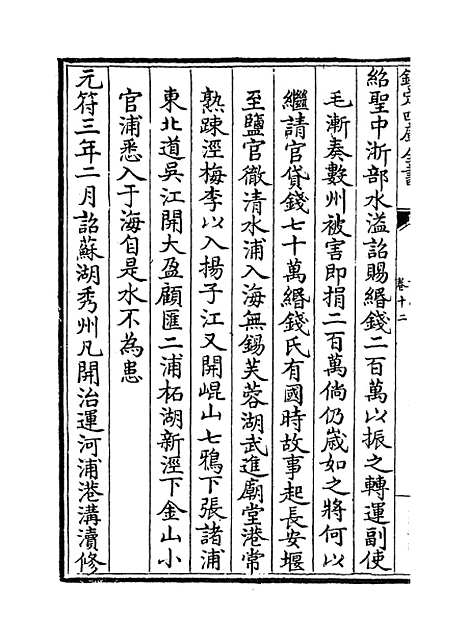 欽定四庫全書
卷十二
紹聖中浙部水溢詔賜緡錢二百萬以振之轉運副使
毛漸奏數州被害即捐二百萬倘仍歲如之將何以
繼請官貸錢七十萬緡錢氏有國時故事起長安堰
至鹽官徹清水浦入海無錫芙蓉湖武進廟堂港常
熟踈涇梅李以入揚子江又開崐山七鴉下張諸浦
東北道吳江開大盈顧匯二浦柘湖新涇下金山小
官浦悉入于海自是水不為患
元符三年二月詔蘇湖秀州凡開治運河浦港溝瀆修